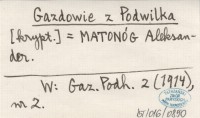 Gazdowie z Podwilka
[krypt.] = MATONÓG Aleksan-
der.
W: Gaz. Podh. 2 (1914),
nr 2.